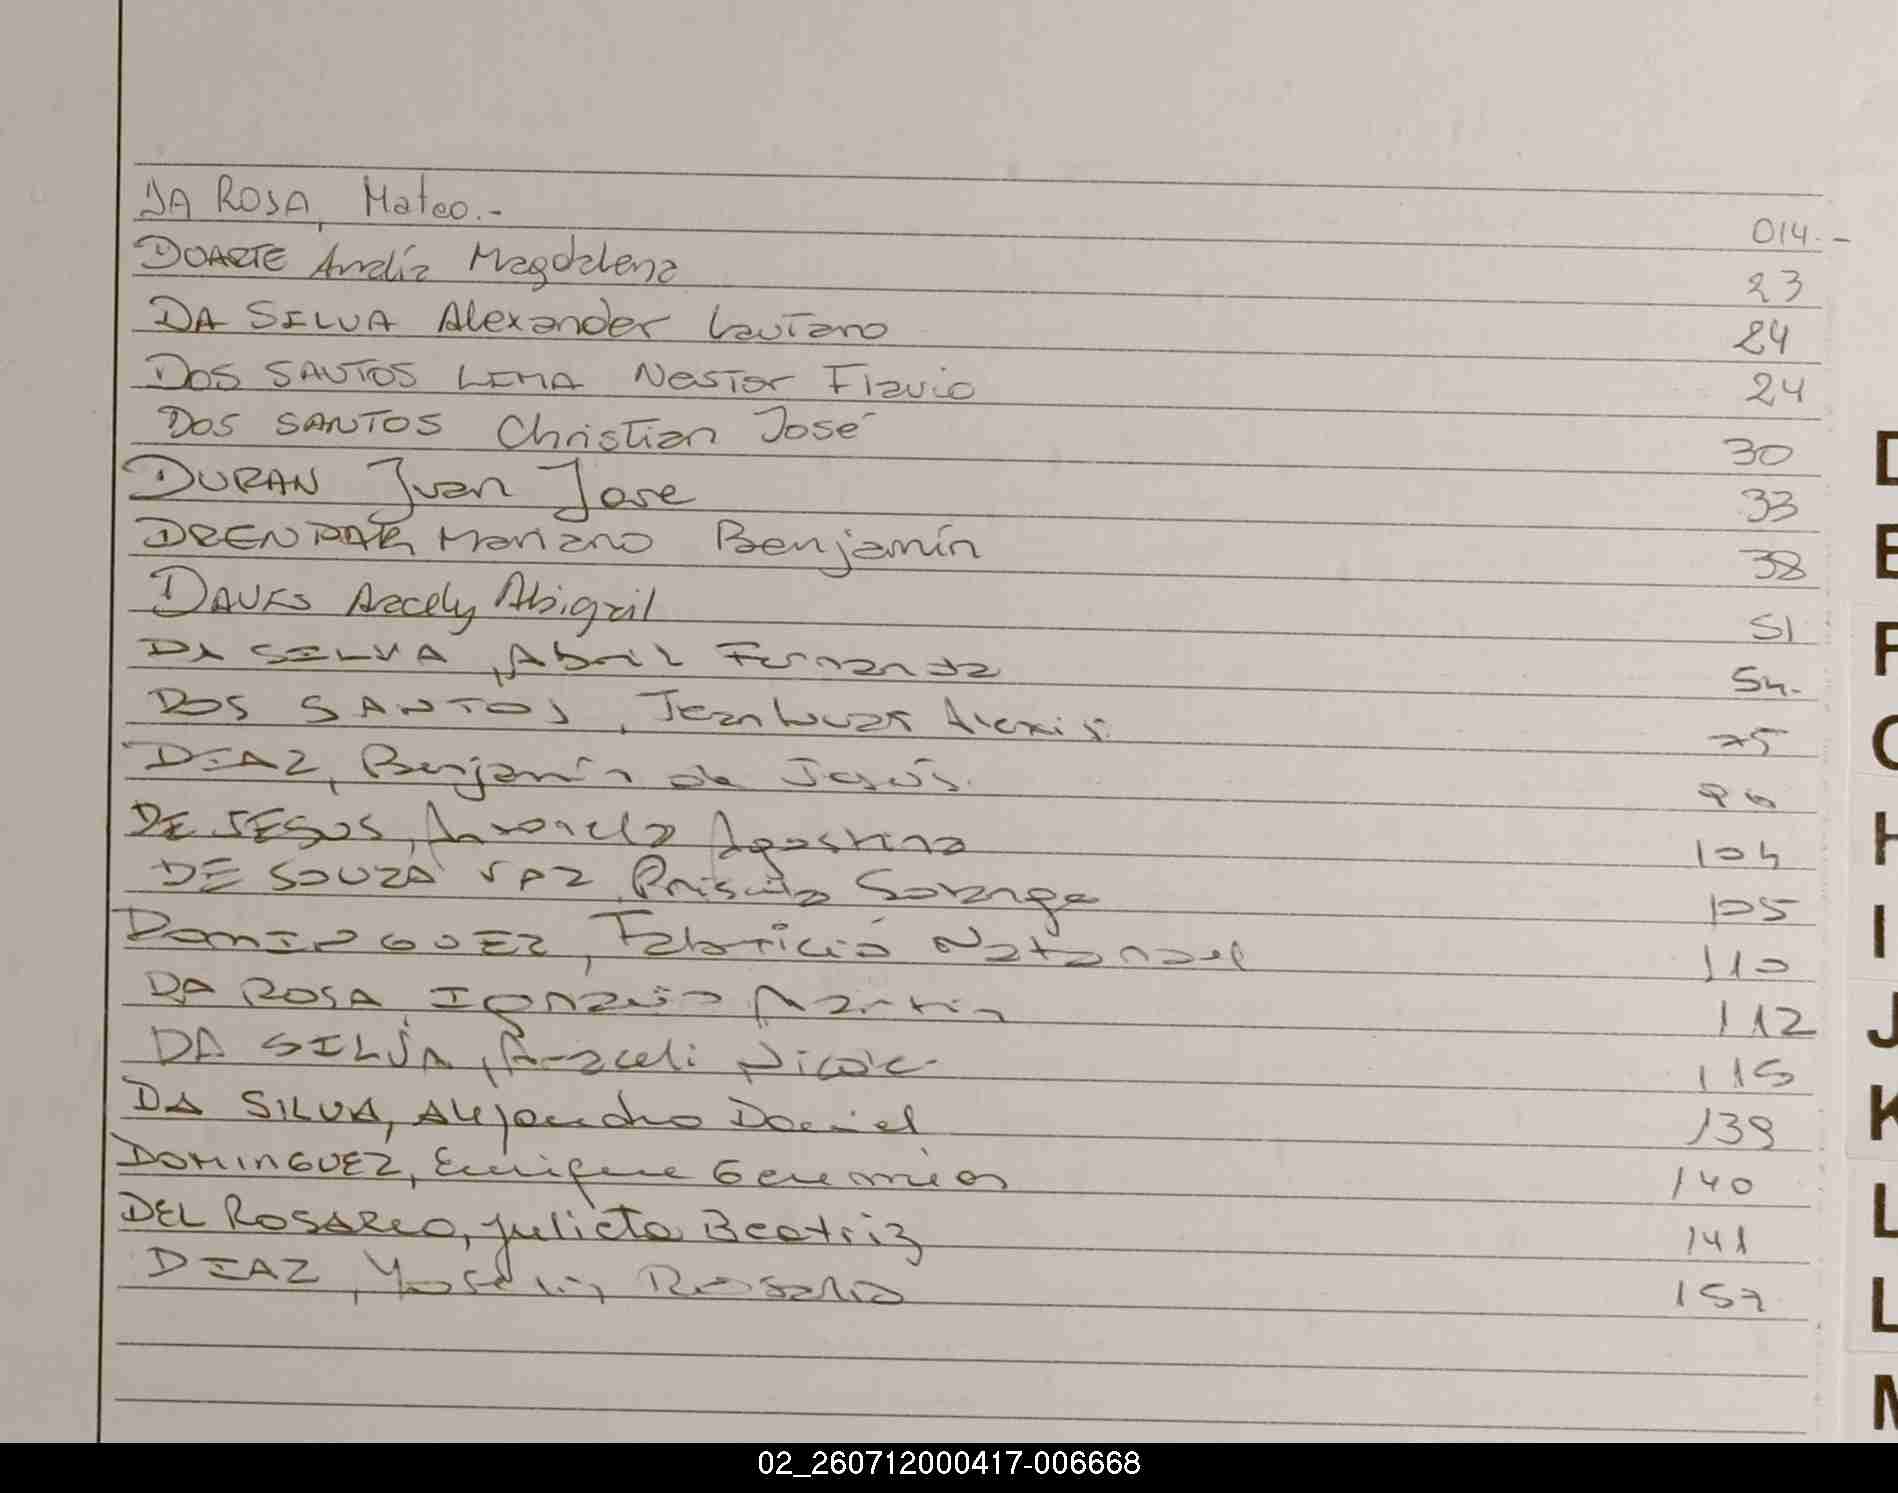 DA ROSA, Mateo.- 014.-
DUARTE Analía Magdalena 23
DA SILVA Alexander Lautaro 24
DOS SANTOS LIMA Nestor Flavio 24
DOS SANTOS Christian José 30
DURAN Juan Jose 33
Mariano Benjamín 38
Aracely Abigail 51
DA SILVA, Abril Fernanda 54.
DOS SANTOS, Jean Lucas Alexis 75
DIAZ, Benjamín de Jesús.
DE JESUS, Agostina 104
DE SOUZA VAZ, Priscila Solange 105
DOMINGUEZ, Fabricio Natanael 110
DA ROSA, Ignacio Martin 112
DA SILVA, Araceli Nicole 115
DA SILVA, Alejandro Daniel 139
DOMINGUEZ, Enrique Geremias 140
DEL ROSARIO, Julieta Beatriz 141
DIAZ, Yoselin Rosario 157
D
E
F
G
H
I
J
K
L
L
M
02_260712000417-006668